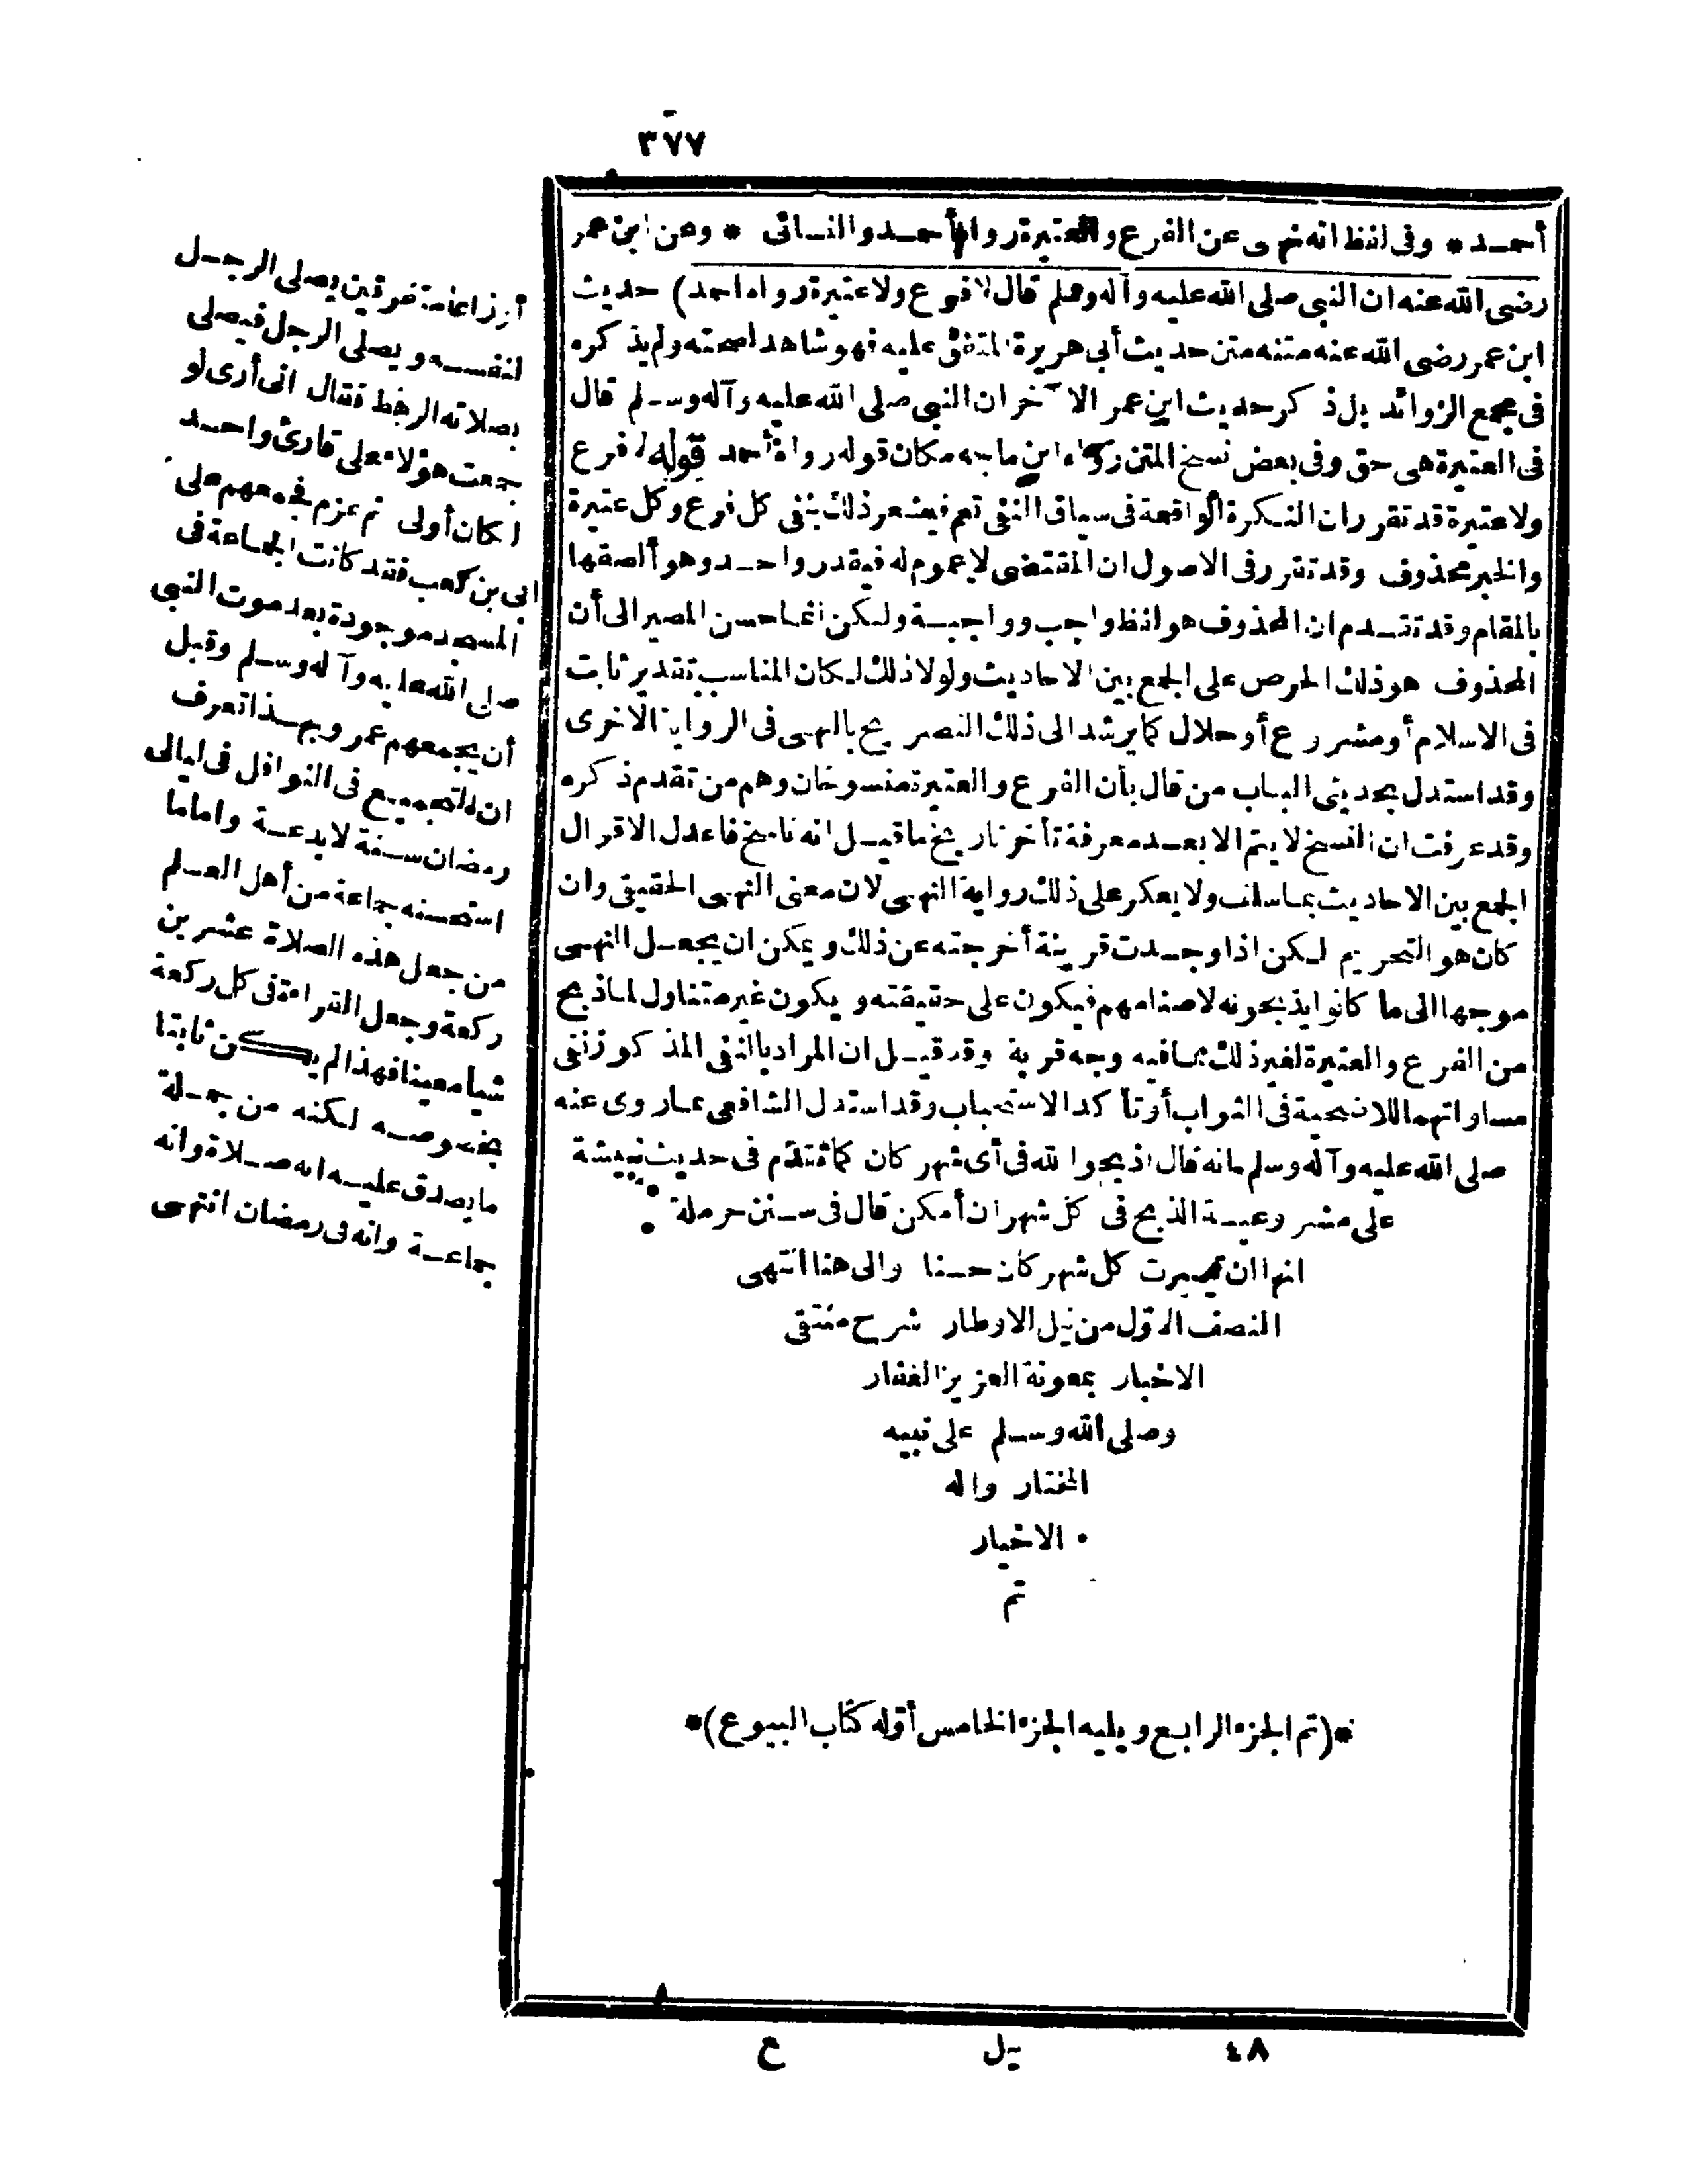 ٣٧٧
أحمد * وفى لفظ انه نهى عن الفرع والعتيرة رواه أحمد والنسائى * وعن ابن عمر
رضى الله عنه ان النبى صلى الله عليه وآله وسلم قال لا فرع ولا عتيرة رواه احمد) حديث
ابن عمر رضى الله عنه متنه متن حديث أبى هريرة المتفق عليه فهو شاهد لصحته ولم يذكره
فى مجمع الزوائد بل ذكر حديث ابن عمر الآخر ان النبى صلى الله عليه وآله وسلم قال
فى العتيرة هى حق وفى بعض نسخ المتن رواه ابن ماجه مكان قوله رواه أحمد قوله لا فرع
ولا عتيرة قد تقرر ان النكرة الواقعة فى سياق النفى تعم فيشعر ذلك بنفى كل فرع وكل عتيرة
والخبر محذوف وقد تقرر فى الاصول ان المقتضى لا عموم له فيقدر واحد وهو ألصقها
بالمقام وقد تقدم ان المحذوف هو لفظ واجب وواجبة ولكن انما حسن المصير الى أن
المحذوف هو ذلك الحرص على الجمع بين الاحاديث ولولا ذلك لكان المناسب تقدير ثابت
فى الاسلام أو مشروع أو حلال كما يرشد الى ذلك التصريح بالنهى فى الرواية الاخرى
وقد استدل بحديثى الباب من قال بأن الفرع والعتيرة منسوخان وهم من تقدم ذكره
وقد عرفت ان النسخ لا يتم الا بعد معرفة تأخر تاريخ ما قيل انه ناسخ فاعدل الاقوال
الجمع بين الاحاديث بما سلف ولا يعكر على ذلك رواية النهى لان معنى النهى الحقيقى وان
كان هو التحريم لكن اذا وجدت قرينة أخرجته عن ذلك ويمكن ان يجعل النهى
موجها الى ما كانوا يذبحونه لاصنامهم فيكون على حقيقته ويكون غير متناول لما ذبح
من الفرع والعتيرة لغير ذلك مما فيه وجه قربة وقد قيل ان المراد بالنفى المذكور نفى
مساواتهما للاضحية فى الثواب أو تأكد الاستحباب وقد استدل الشافعى بما روى عنه
صلى الله عليه وآله وسلم انه قال اذبحوا لله فى أى شهر كان كما تقدم فى حديث نبيشة
على مشروعية الذبح فى كل شهر ان أمكن قال فى سنن حرملة
انها ان تيسرت كل شهر كان حسنا والى هنا انتهى
النصف الاول من نيل الاوطار شرح منتقى
الاخبار بمعونة العزيز الغفار
وصلى الله وسلم على نبيه
المختار واله
الاخيار
تم
*(تم الجزء الرابع ويليه الجزء الخامس أوله كتاب البيوع)*
٤٨ نيل ع
أوزاعا متفرقين يصلى الرجل
لنفسه ويصلى الرجل فيصلى
بصلاته الرهط فقال انى أرى لو
جمعت هؤلاء على قارئ واحد
لكان أولى ثم عزم فجمعهم على
ابى بن كعب فقد كانت الجماعة فى
المسجد موجودة بعد موت النبى
صلى الله عليه وآله وسلم وقبل
أن يجمعهم عمر وبهذا تعرف
ان التجميع فى النوافل فى ليالى
رمضان سنة لا بدعة واما ما
استحسنه جماعة من أهل العلم
من جعل هذه الصلاة عشرين
ركعة وجعل القراءة فى كل ركعة
شيأ معينا فهذا لم يكن ثابتا
بخصوصه لكنه من جملة
ما يصدق عليه انه صلاة وانه
جماعة وانه فى رمضان انتهى